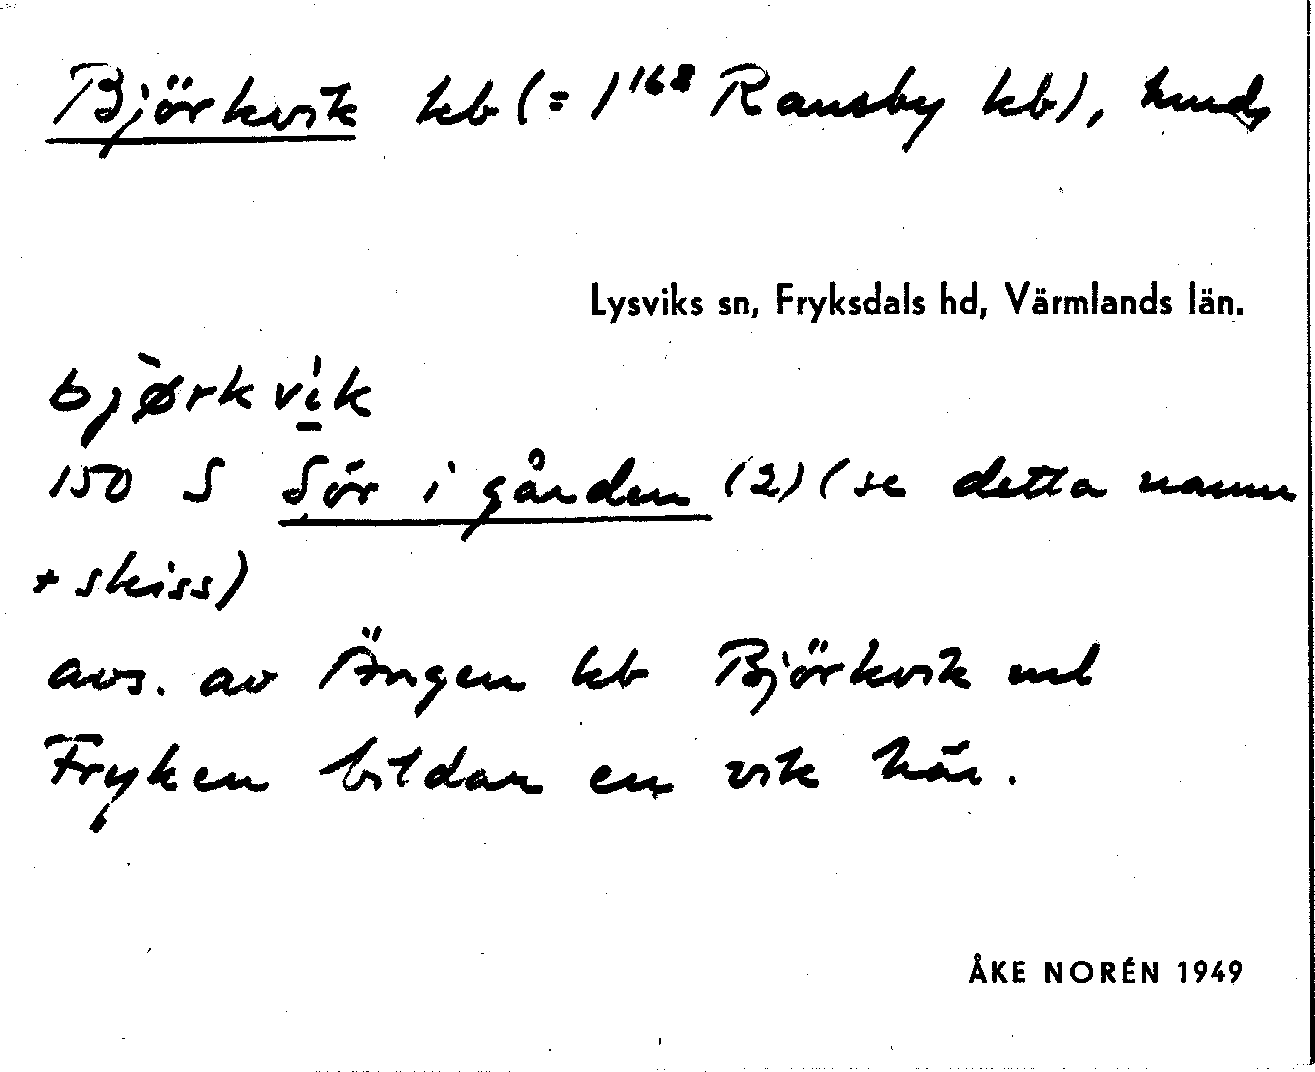 Björkvik kb (= 1¹⁶⁸ Ransby kb),
Lysviks sn, Fryksdals hd, Värmlands län.
bjørkvik
150 S Sör i gården (2) (se detta namn
+ skiss)
avs. av Ängen kb Björkvik vid
Fryken bildar en vik här.
ÅKE NORÉN 1949